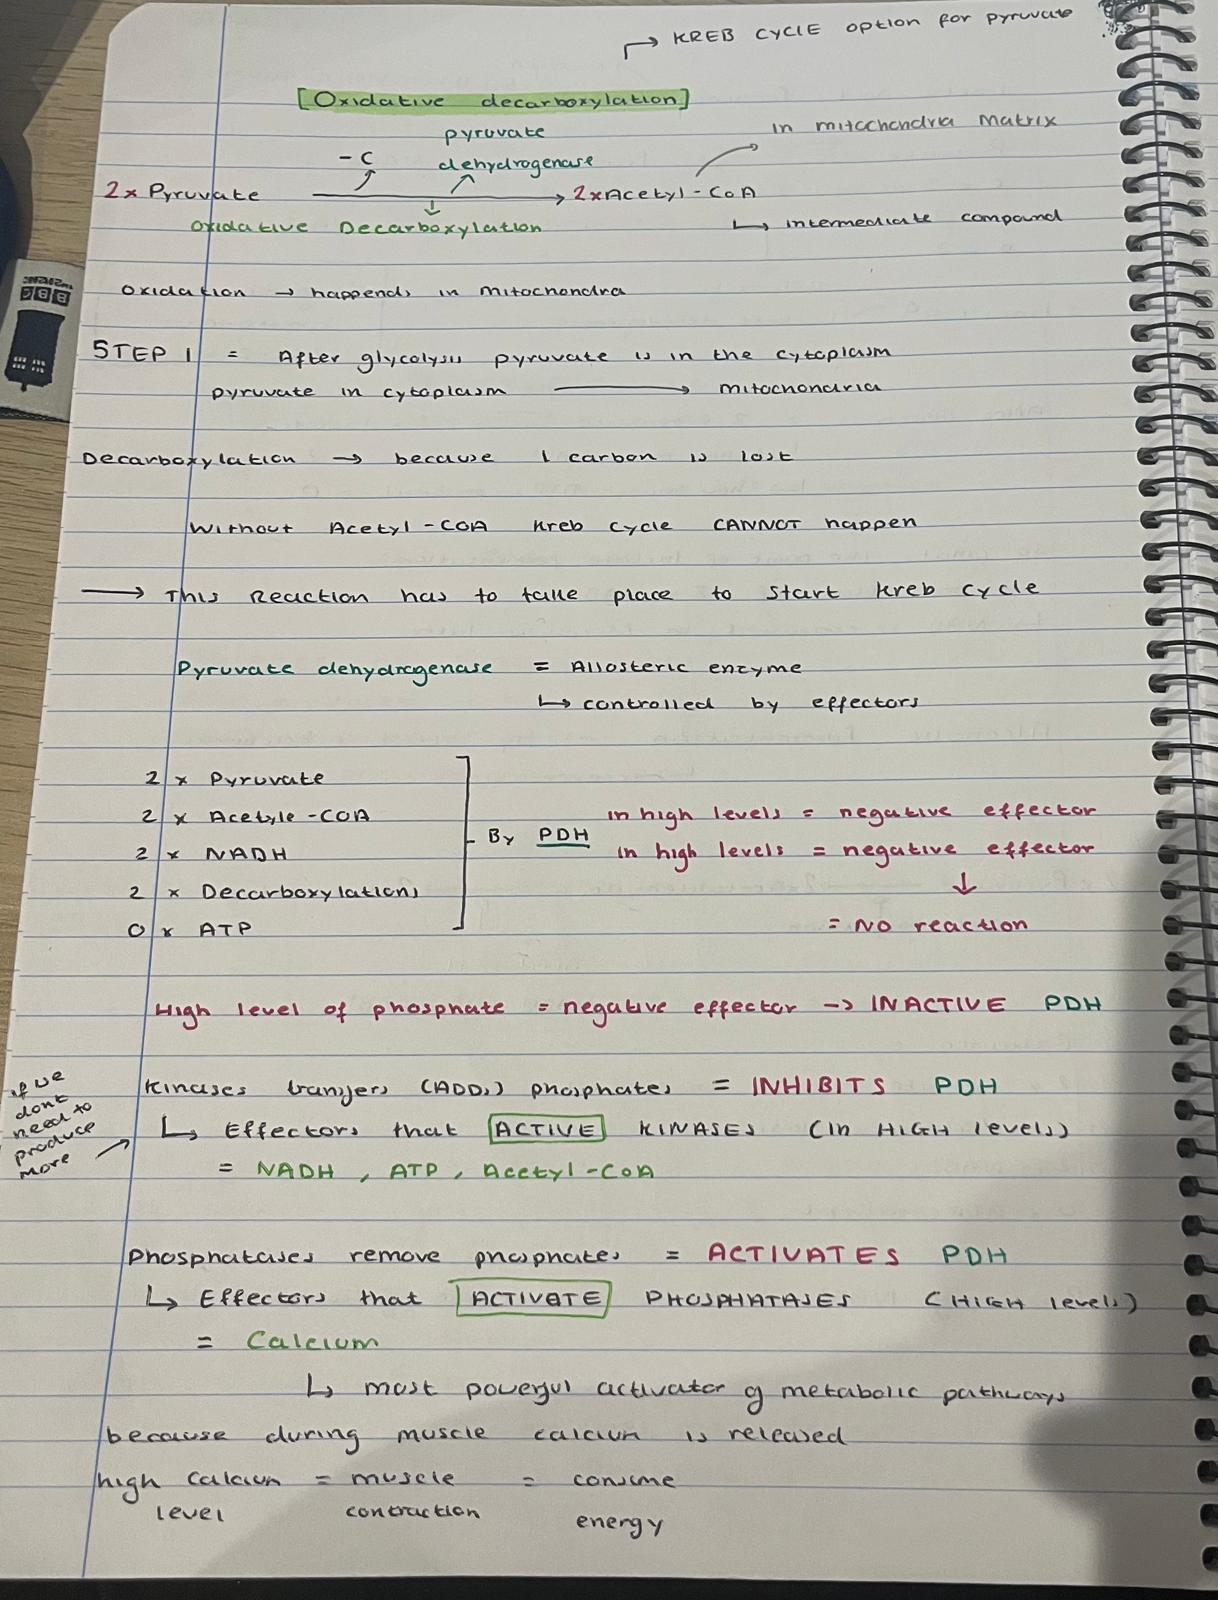 → KREB CYCLE option for pyruvate
[Oxidative decarboxylation]
pyruvate
in mitochondria matrix
- C
dehydrogenase
2x Pyruvate → 2x Acetyl-CoA
Oxidative Decarboxylation
↳ intermediate compound
Oxidation → happends in mitochondra
STEP 1 = After glycolysis pyruvate is in the cytoplasm
pyruvate in cytoplasm → mitochondria
Decarboxylation → because 1 carbon is lost
Without Acetyl-COA Kreb Cycle CANNOT happen
→ This Reaction has to take place to start Kreb cycle
Pyruvate dehydrogenase = Allosteric enzyme
↳ controlled by effectors
2 x Pyruvate
2 x Acetyle-COA in high levels = negative effector
By PDH
2 x NADH in high levels = negative effector
↓
2 x Decarboxylations
0 x ATP = NO reaction
High level of phosphate = negative effector → INACTIVE PDH
if we
dont
need to
produce
more →
Kinases transfers (ADDs) phosphates = INHIBITS PDH
↳ Effectors that ACTIVE KINASES (in HIGH levels)
= NADH, ATP, Acetyl-CoA
Phosphatases remove phosphates = ACTIVATES PDH
↳ Effectors that ACTIVATE PHOSPHATASES (HIGH levels)
= Calcium
↳ most powerful activator of metabolic pathways
because during muscle calcium is released
high calcium = muscle = consume
level contraction energy